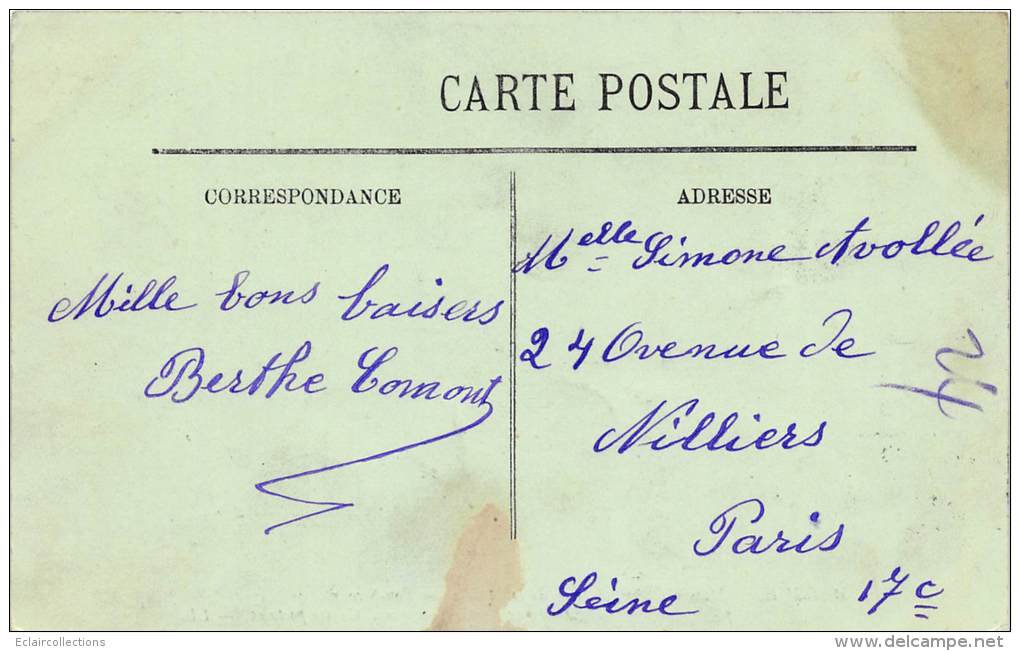 CARTE POSTALE
CORRESPONDANCE
Mille bons baisers
Berthe Comont
ADRESSE
Melle Simone Avollée
24 Avenue de
Villiers
Paris
Seine 17e
42
Eclaircollections
www.delcampe.net